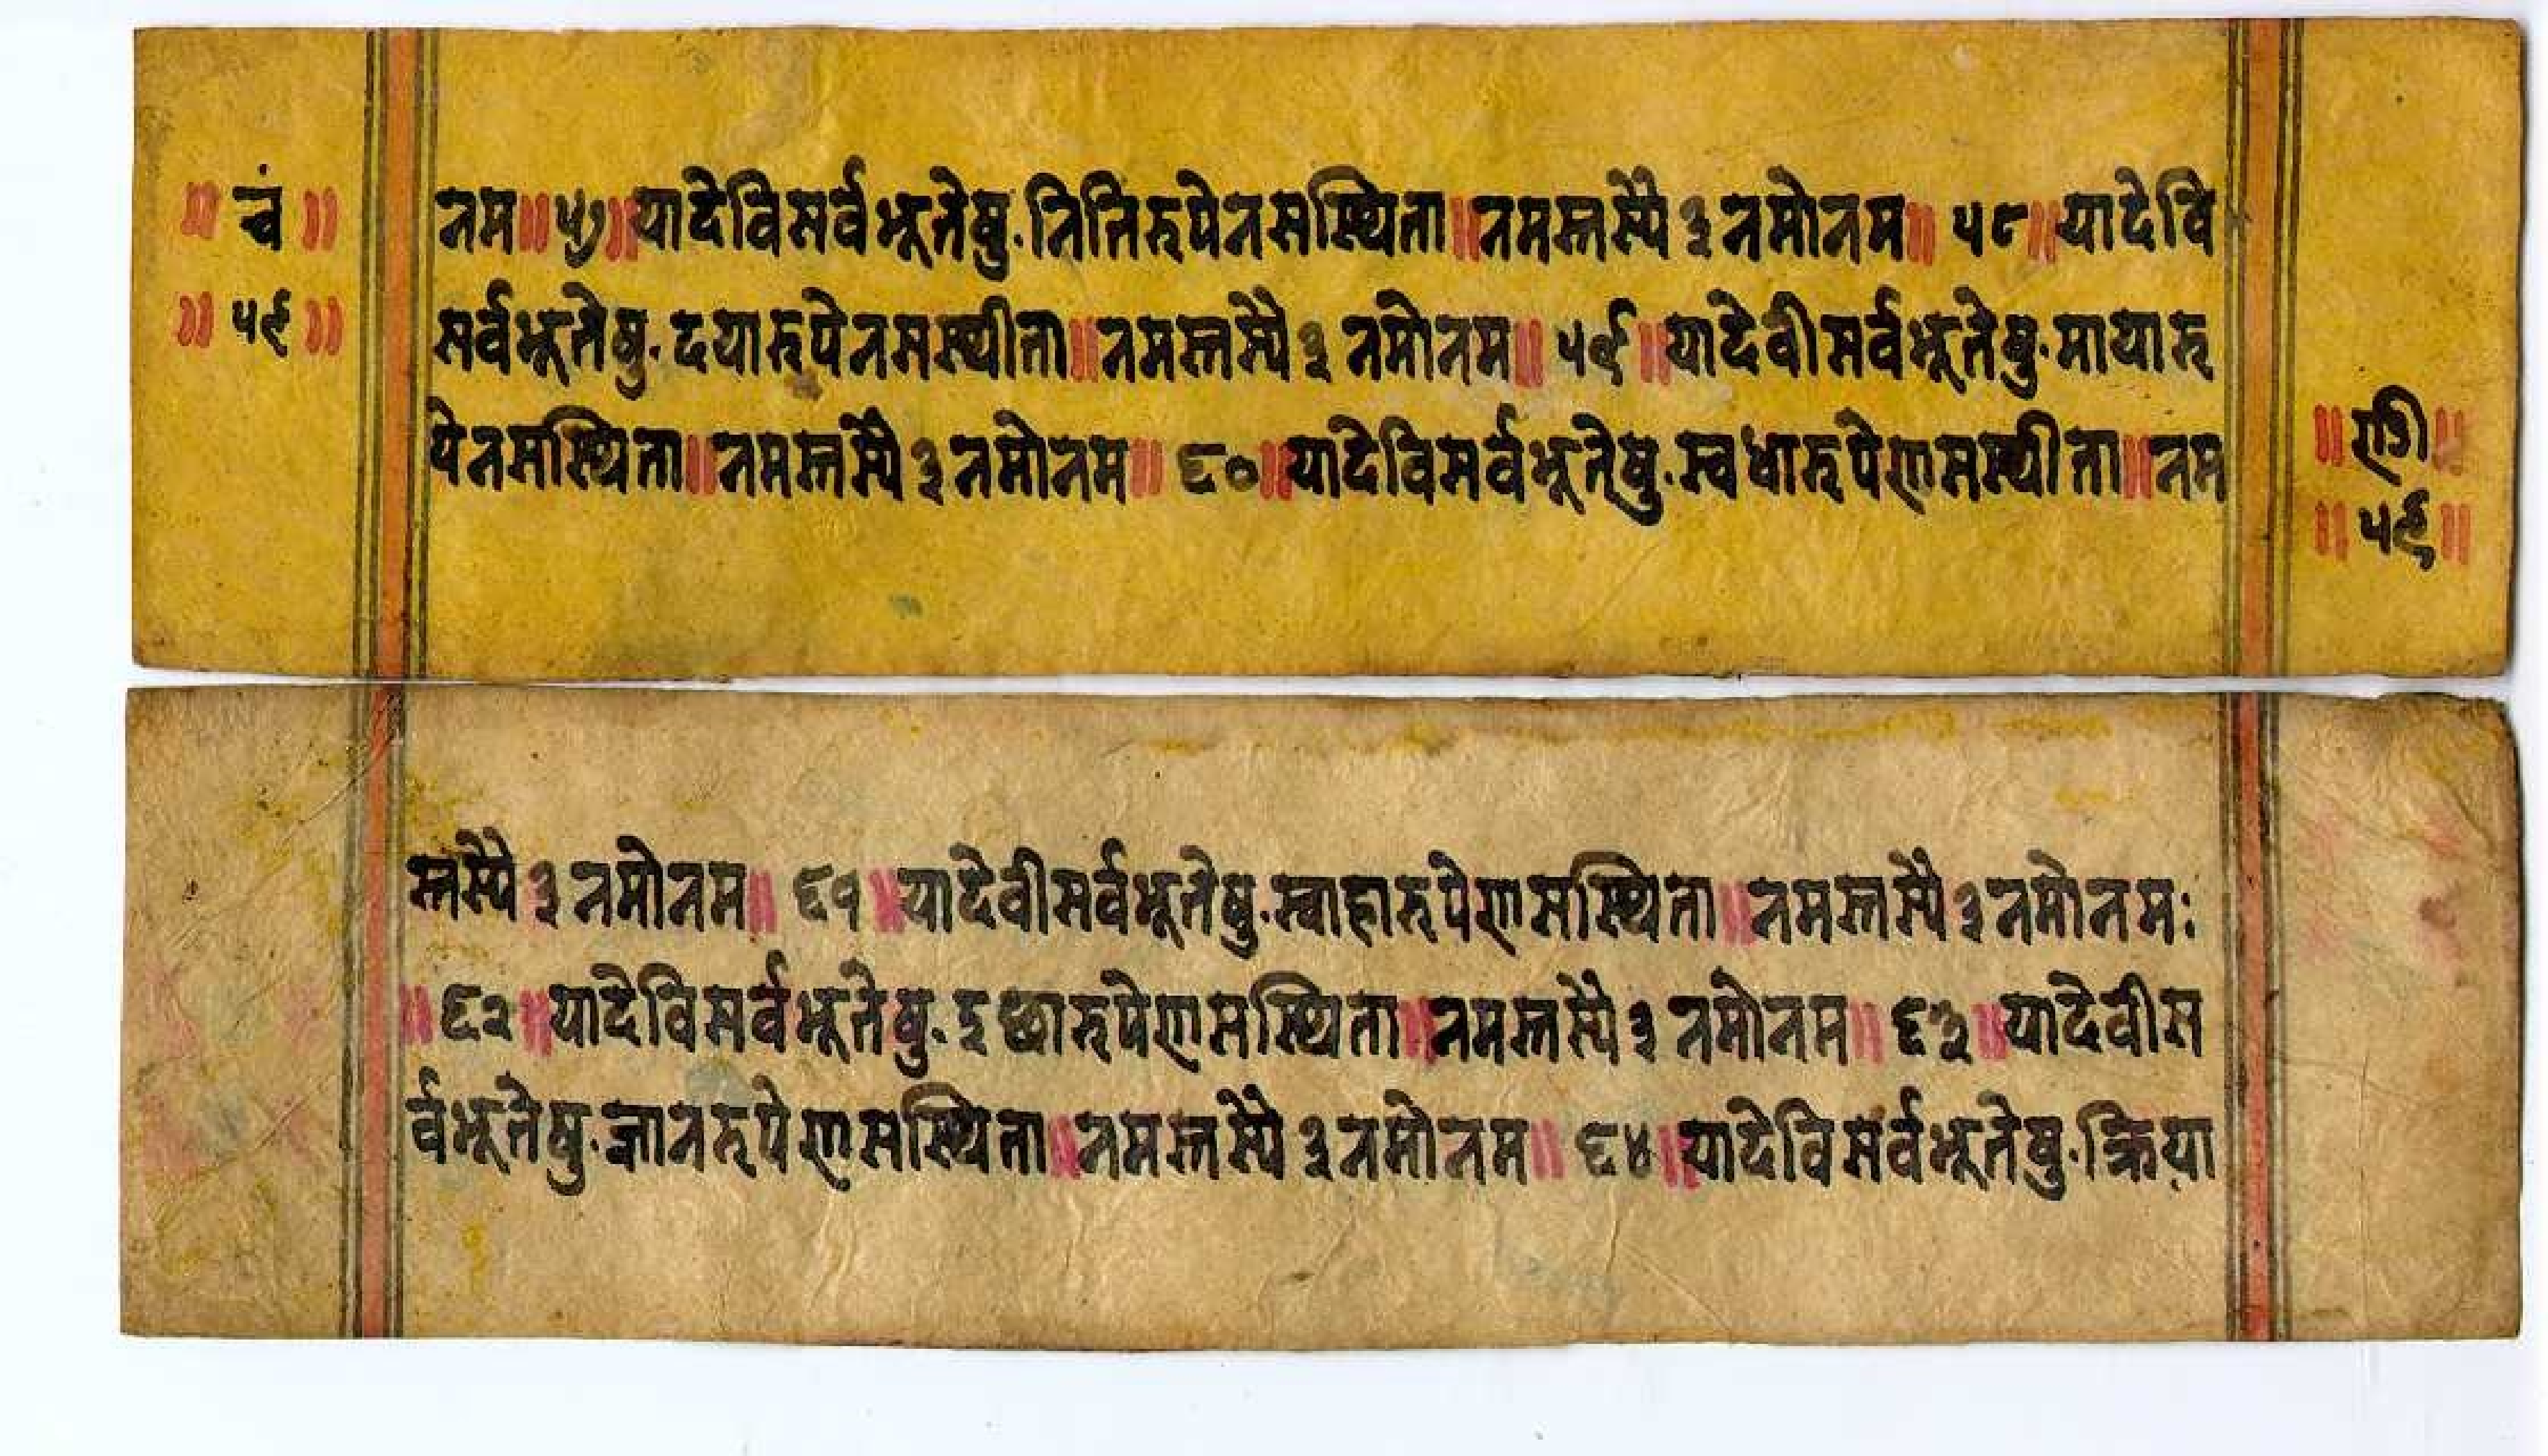 ॥ चं ॥
॥ ५९ ॥
नम॥ ५७॥यादेविसर्वभूतेषु·नितिरुपेनसस्थिता॥नमस्तस्यै ३ नमोनम॥ ५८॥यादेवि
सर्वभूतेषु·दयारुपेनसस्थीता॥नमस्तस्यै ३ नमोनम॥ ५९॥यादेवीसर्वभूतेषु·मायारु
पेनसस्थिता॥नमस्तस्यै ३ नमोनम॥ ६०॥यादेविसर्वभूतेषु·स्वधारुपेणसस्थीता॥नम
॥ ण्डी ॥
॥ ५९ ॥
स्तस्यै ३ नमोनम॥ ६१॥यादेवीसर्वभूतेषु·स्वाहारुपेणसस्थिता॥नमस्तस्यै ३ नमोनमः
॥ ६२॥यादेविसर्वभूतेषु·इछारुपेणसस्थिता॥नमस्तस्यै ३ नमोनम॥ ६३॥यादेवीस
र्वभूतेषु·ज्ञानरुपेणसस्थिता॥नमस्तस्यै ३ नमोनम॥ ६४॥यादेविसर्वभूतेषु·क्रिया